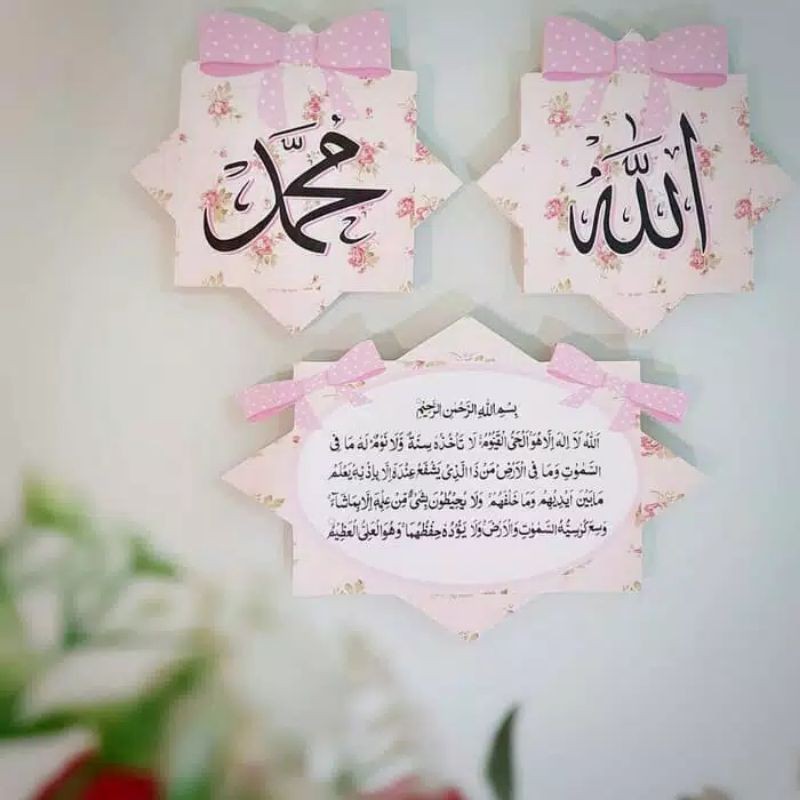 الله
محمد
بِسْمِ اللهِ الرَّحْمٰنِ الرَّحِيْمِ
اَللهُ لَا اِلٰهَ اِلَّا هُوَ اَلْحَىُّ الْقَيُّوْمُ ۚ لَا تَأْخُذُهٗ سِنَةٌ وَّلَا نَوْمٌ ۗ لَهٗ مَا فِى
السَّمٰوٰتِ وَمَا فِى الْاَرْضِ ۗ مَنْ ذَا الَّذِىْ يَشْفَعُ عِنْدَهٗ اِلَّا بِاِذْنِهٖ ۗ يَعْلَمُ
مَا بَيْنَ اَيْدِيْهِمْ وَمَا خَلْفَهُمْ ۚ وَلَا يُحِيْطُوْنَ بِشَىْءٍ مِّنْ عِلْمِهٖ اِلَّا بِمَا شَاءَ ۚ
وَسِعَ كُرْسِيُّهُ السَّمٰوٰتِ وَالْاَرْضَ ۚ وَلَا يَـُٔوْدُهٗ حِفْظُهُمَا ۚ وَهُوَ الْعَلِىُّ الْعَظِيْمُ